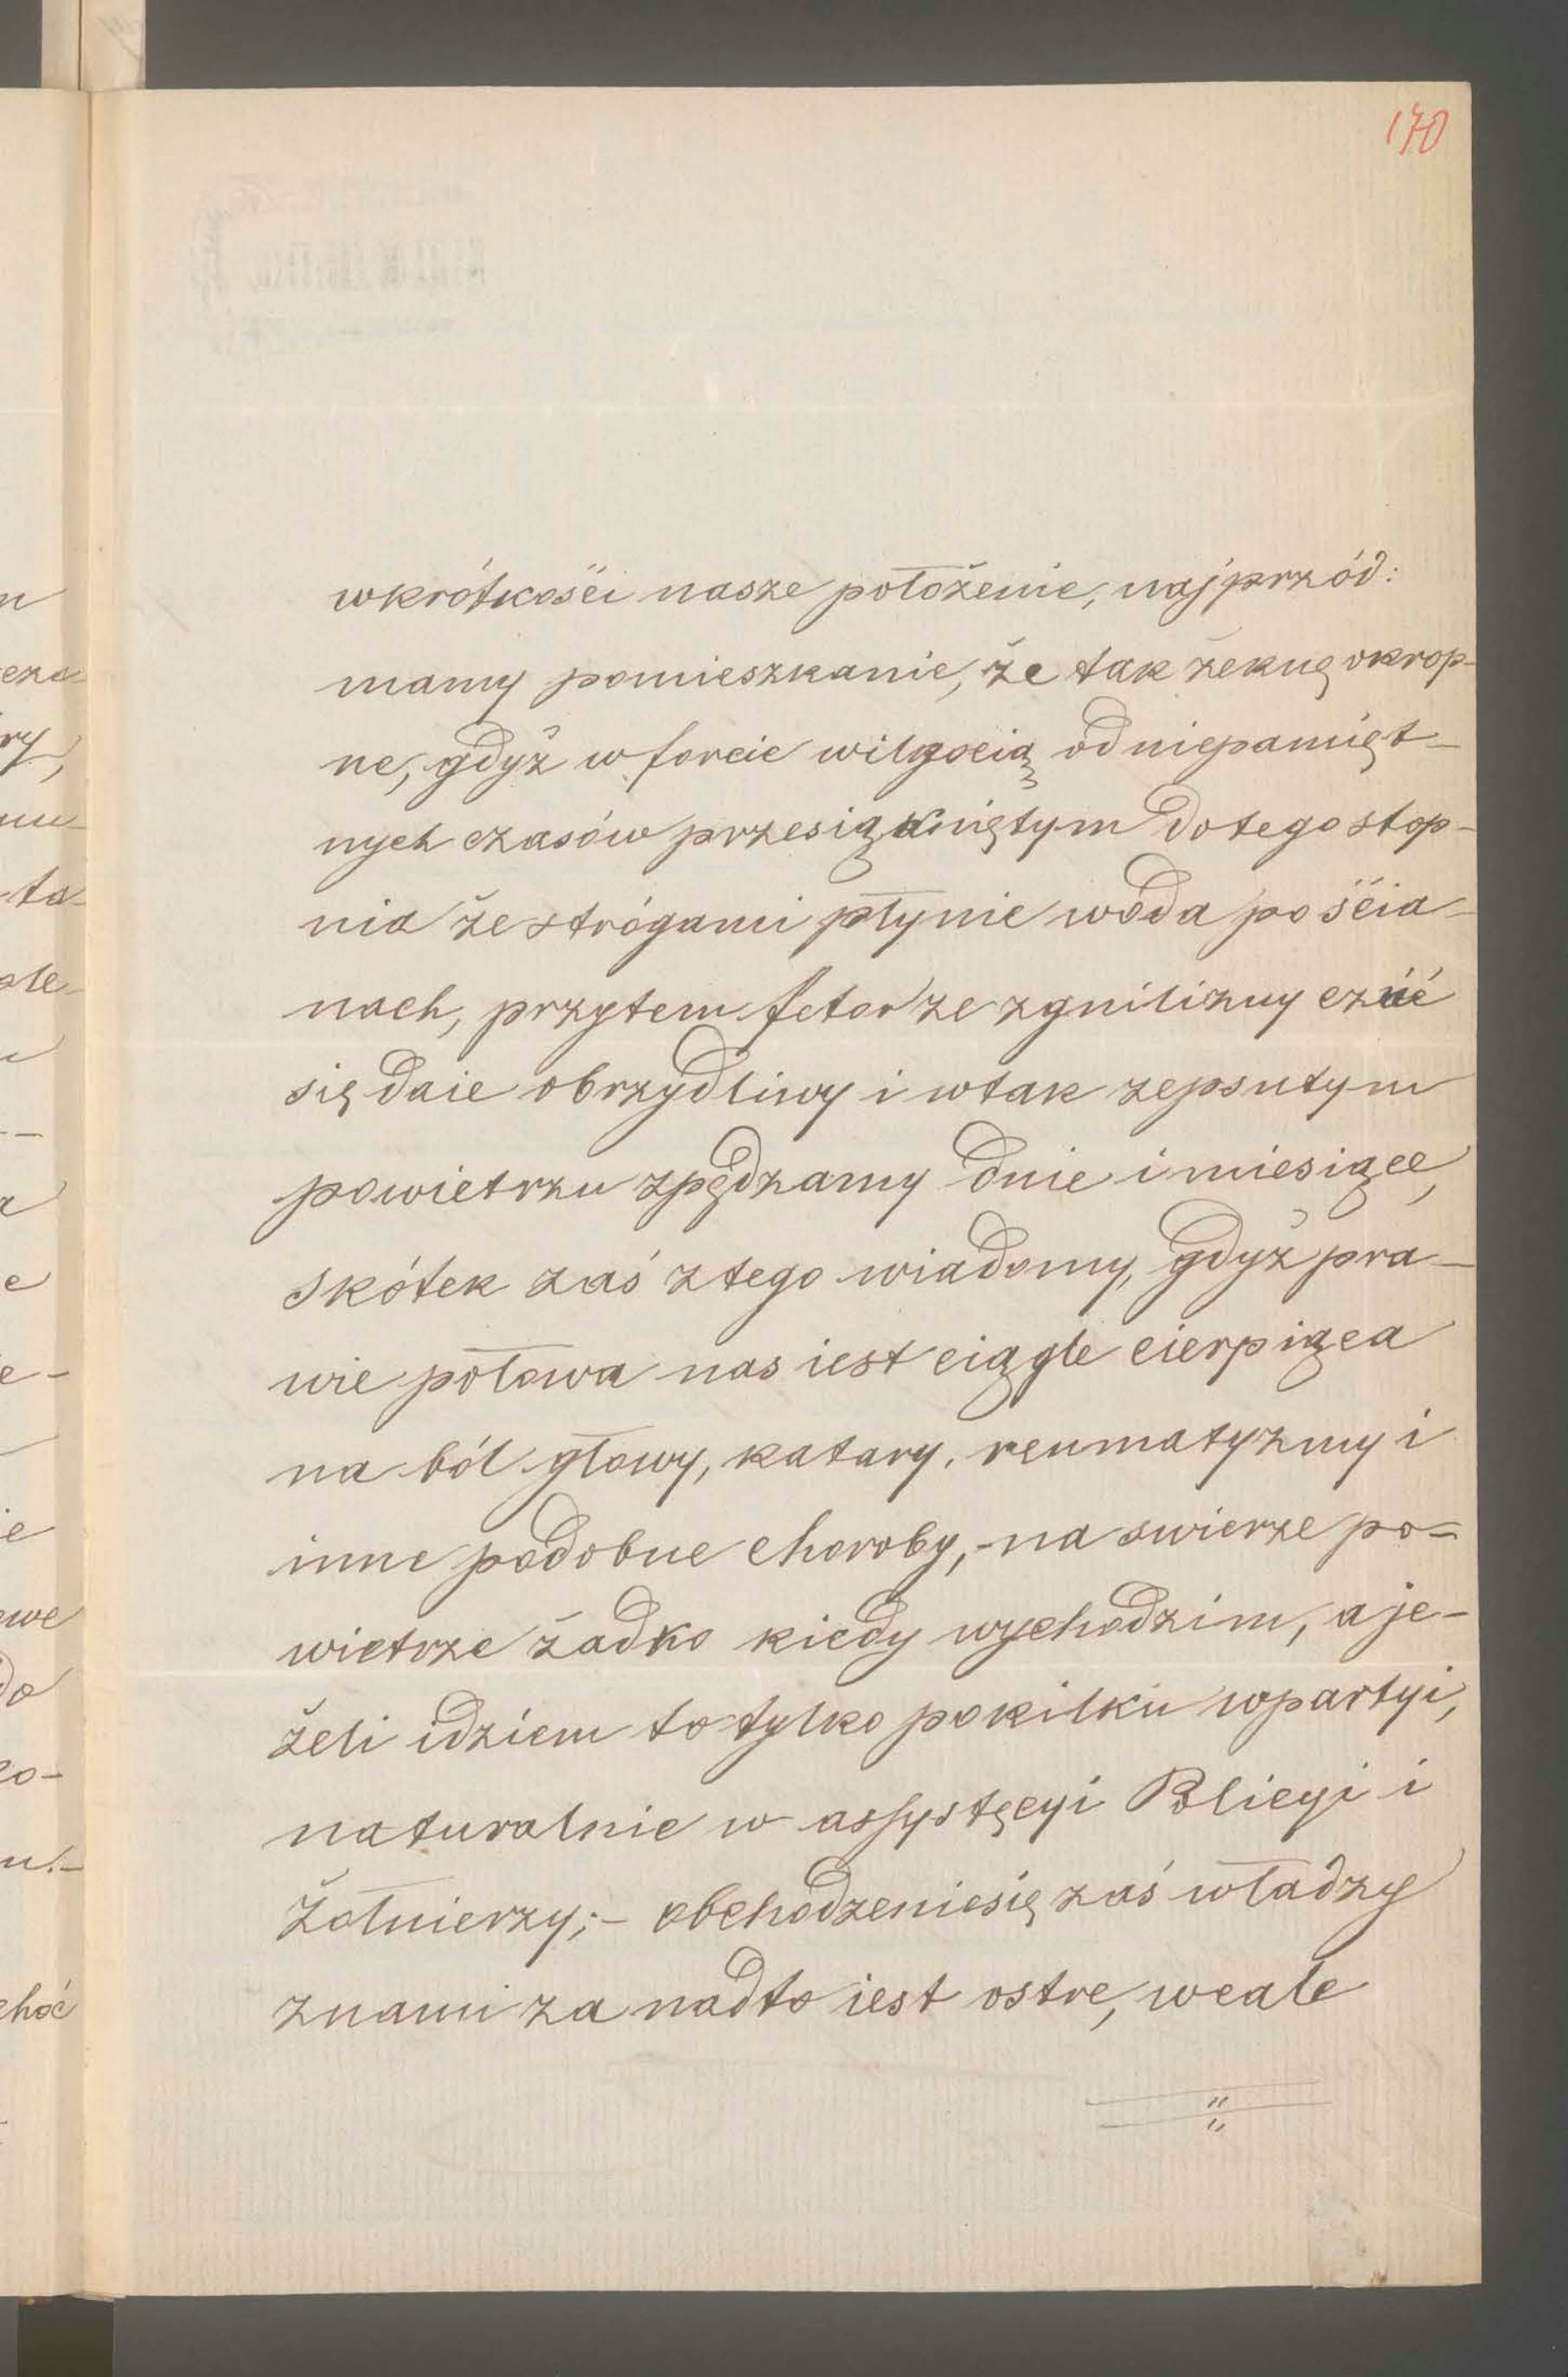 170
wkrótkości nasze położenie, najprzód:
mamy pomieszkanie, że tak żeknę okrop-
ne, gdyż w forcie wilgocią od niepamięt-
nych czasów przesiąkniętym do tego stop-
nia że strógami płynie woda po ścia-
nach, przytem fetor ze zgnilizny czuć
się daie obrzydliwy i wtak zepsutym
powietrzu zpędzamy dnie i miesiące,
skótek zaś ztego wiadomy, gdyż pra-
wie połowa nas iest ciągle cierpiąca
na ból głowy, katary, reumatyzmy i
inne podobne choroby,- na swierze po-
wietrze żadko kiedy wychodzim, a je-
żeli idziem to tylko pokilku wpartyi,
naturalnie w assystęcyi Policyi i
Żołnierzy;- obchodzeniesię zaś władzy
znami za nadto iest ostre, wcale